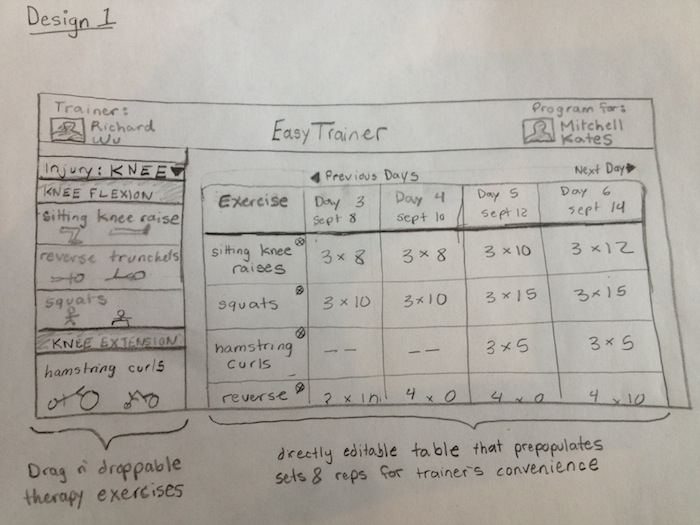 Design 1
Trainer:
Richard
Wu
EasyTrainer
Program for:
Mitchell
Kates
Injury: KNEE
KNEE FLEXION
sitting knee raise
reverse trunchets
squats
KNEE EXTENSION
hamstring curls
Previous Days
Next Day
Exercise
Day 3
Sept 8
Day 4
sept 10
Day 5
sept 12
Day 6
sept 14
sitting knee
raises
3 x 8
3 x 8
3 x 10
3 x 12
squats
3 x 10
3x10
3 x 15
3x15
hamstring
curls
--
--
3x5
3 x 5
reverse
4 x 10
Drag n' droppable
therapy exercises
directly editable table that prepopulates
sets & reps for trainer's convenience